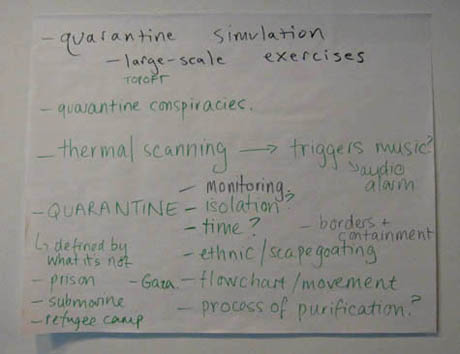 - quarantine simulation
- large-scale exercises
TOPOFF
- quarantine conspiracies.
- thermal scanning → triggers music?
↳ audio alarm
- monitoring
- QUARANTINE - isolation?
- time?
- borders + containment
↳ defined by what it's not
- ethnic/scapegoating
- prison
- Gaza
- flowchart/movement
- submarine
- process of purification?
- refugee camp